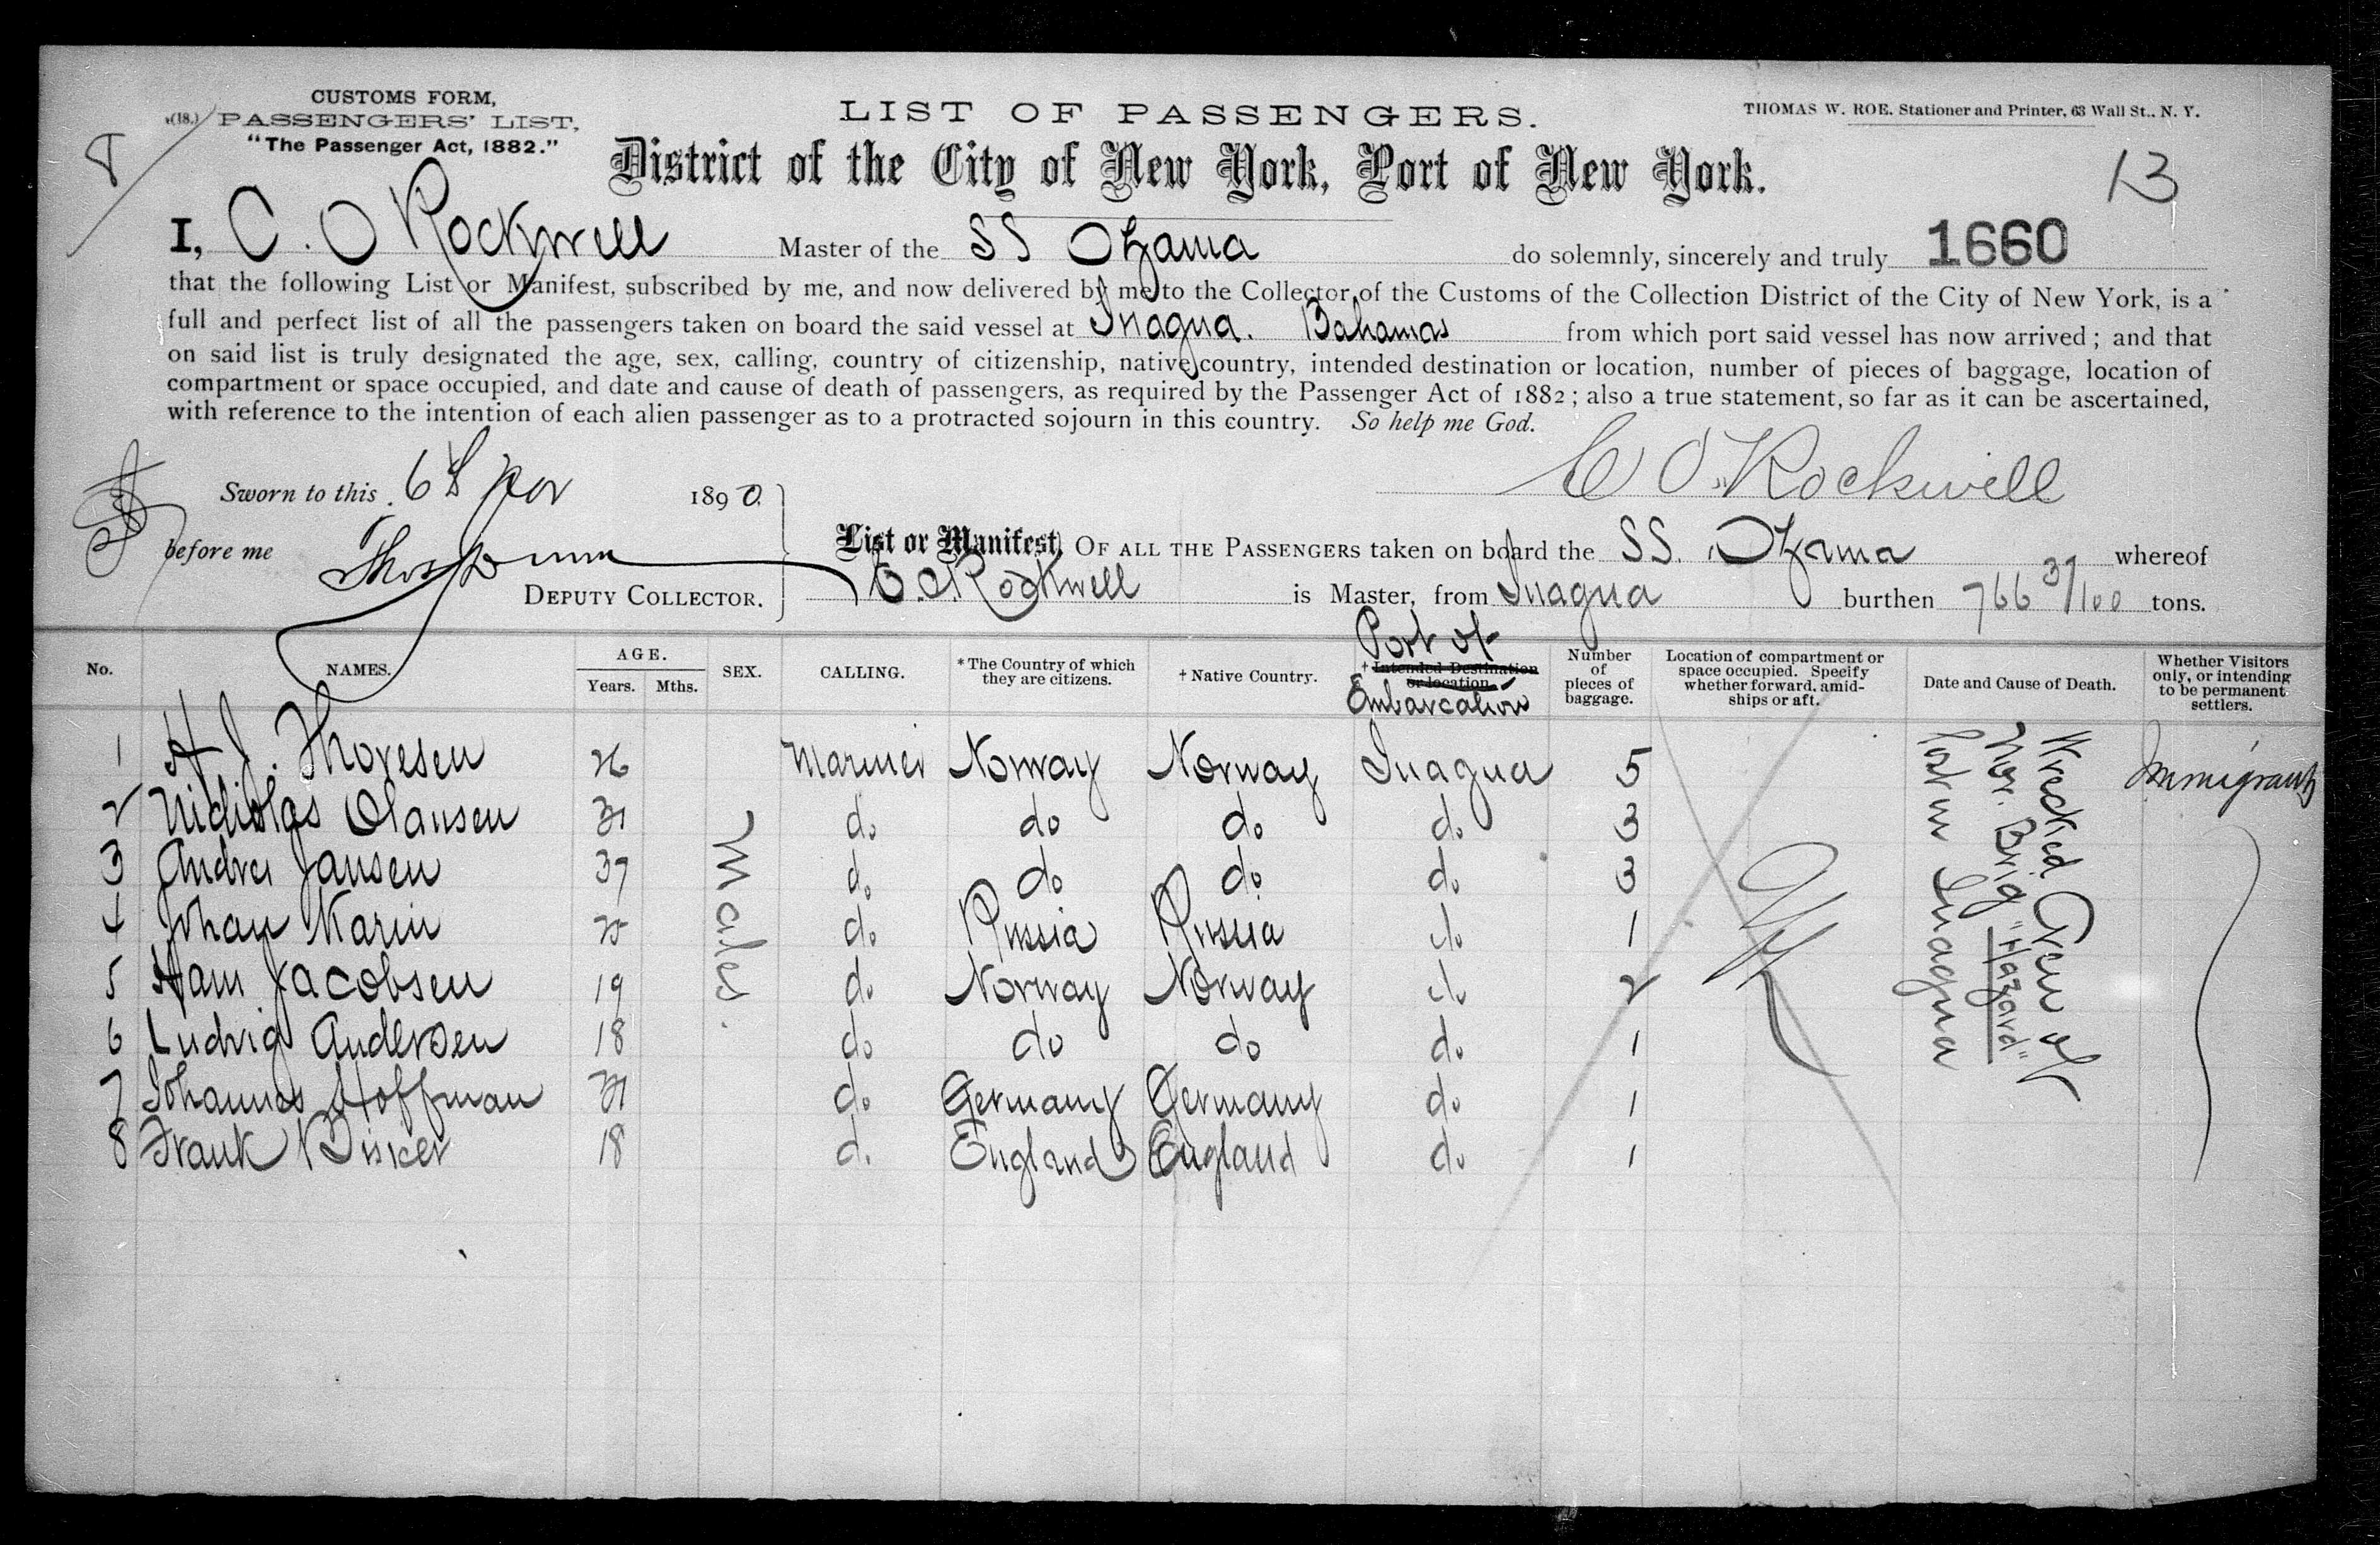 CUSTOMS FORM,
(18.) PASSENGERS' LIST,
"The Passenger Act, 1882."
8
LIST OF PASSENGERS.
THOMAS W. ROE. Stationer and Printer, 63 Wall St., N. Y.
District of the City of New York, Port of New York.
13
I, C. O Rockwell Master of the SS Ozama do solemnly, sincerely and truly 1660
that the following List or Manifest, subscribed by me, and now delivered by me to the Collector of the Customs of the Collection District of the City of New York, is a
full and perfect list of all the passengers taken on board the said vessel at Inagua. Bahamas from which port said vessel has now arrived; and that
on said list is truly designated the age, sex, calling, country of citizenship, native country, intended destination or location, number of pieces of baggage, location of
compartment or space occupied, and date and cause of death of passengers, as required by the Passenger Act of 1882; also a true statement, so far as it can be ascertained,
with reference to the intention of each alien passenger as to a protracted sojourn in this country. So help me God.
C O Rockwell
Sworn to this 6 Nov 1890
before me Thos Dunn
DEPUTY COLLECTOR.
List or Manifest, OF ALL THE PASSENGERS taken on board the SS. Ozama whereof
C. O. Rockwell is Master, from Inagua burthen 766 37/100 tons.
No. NAMES. AGE. Years. Mths. SEX. CALLING. *The Country of which they are citizens. †Native Country. †Intended Destination or location. Port of Embarcation Number of pieces of baggage. Location of compartment or space occupied. Specify whether forward, amidships or aft. Date and Cause of Death. Whether Visitors only, or intending to be permanent settlers.
1 H J. Thoresen 26 Mariner Norway Norway Inagua 5 Immigrants
2 Nicholas Olausen 31 do do do do 3
3 Andrea Jansen 37 do do do do 3
4 Johan Karin 25 do Russia Russia do 1
5 Ham Jacobsen 19 do Norway Norway do 2
6 Ludvig Andersen 18 do do do do 1
7 Johannes Hoffman 31 do Germany Germany do 1
8 Frank 18 do England England do 1
Males.
Wrecked Crew of
Nor. Brig "Hazard"
lost in Inagua